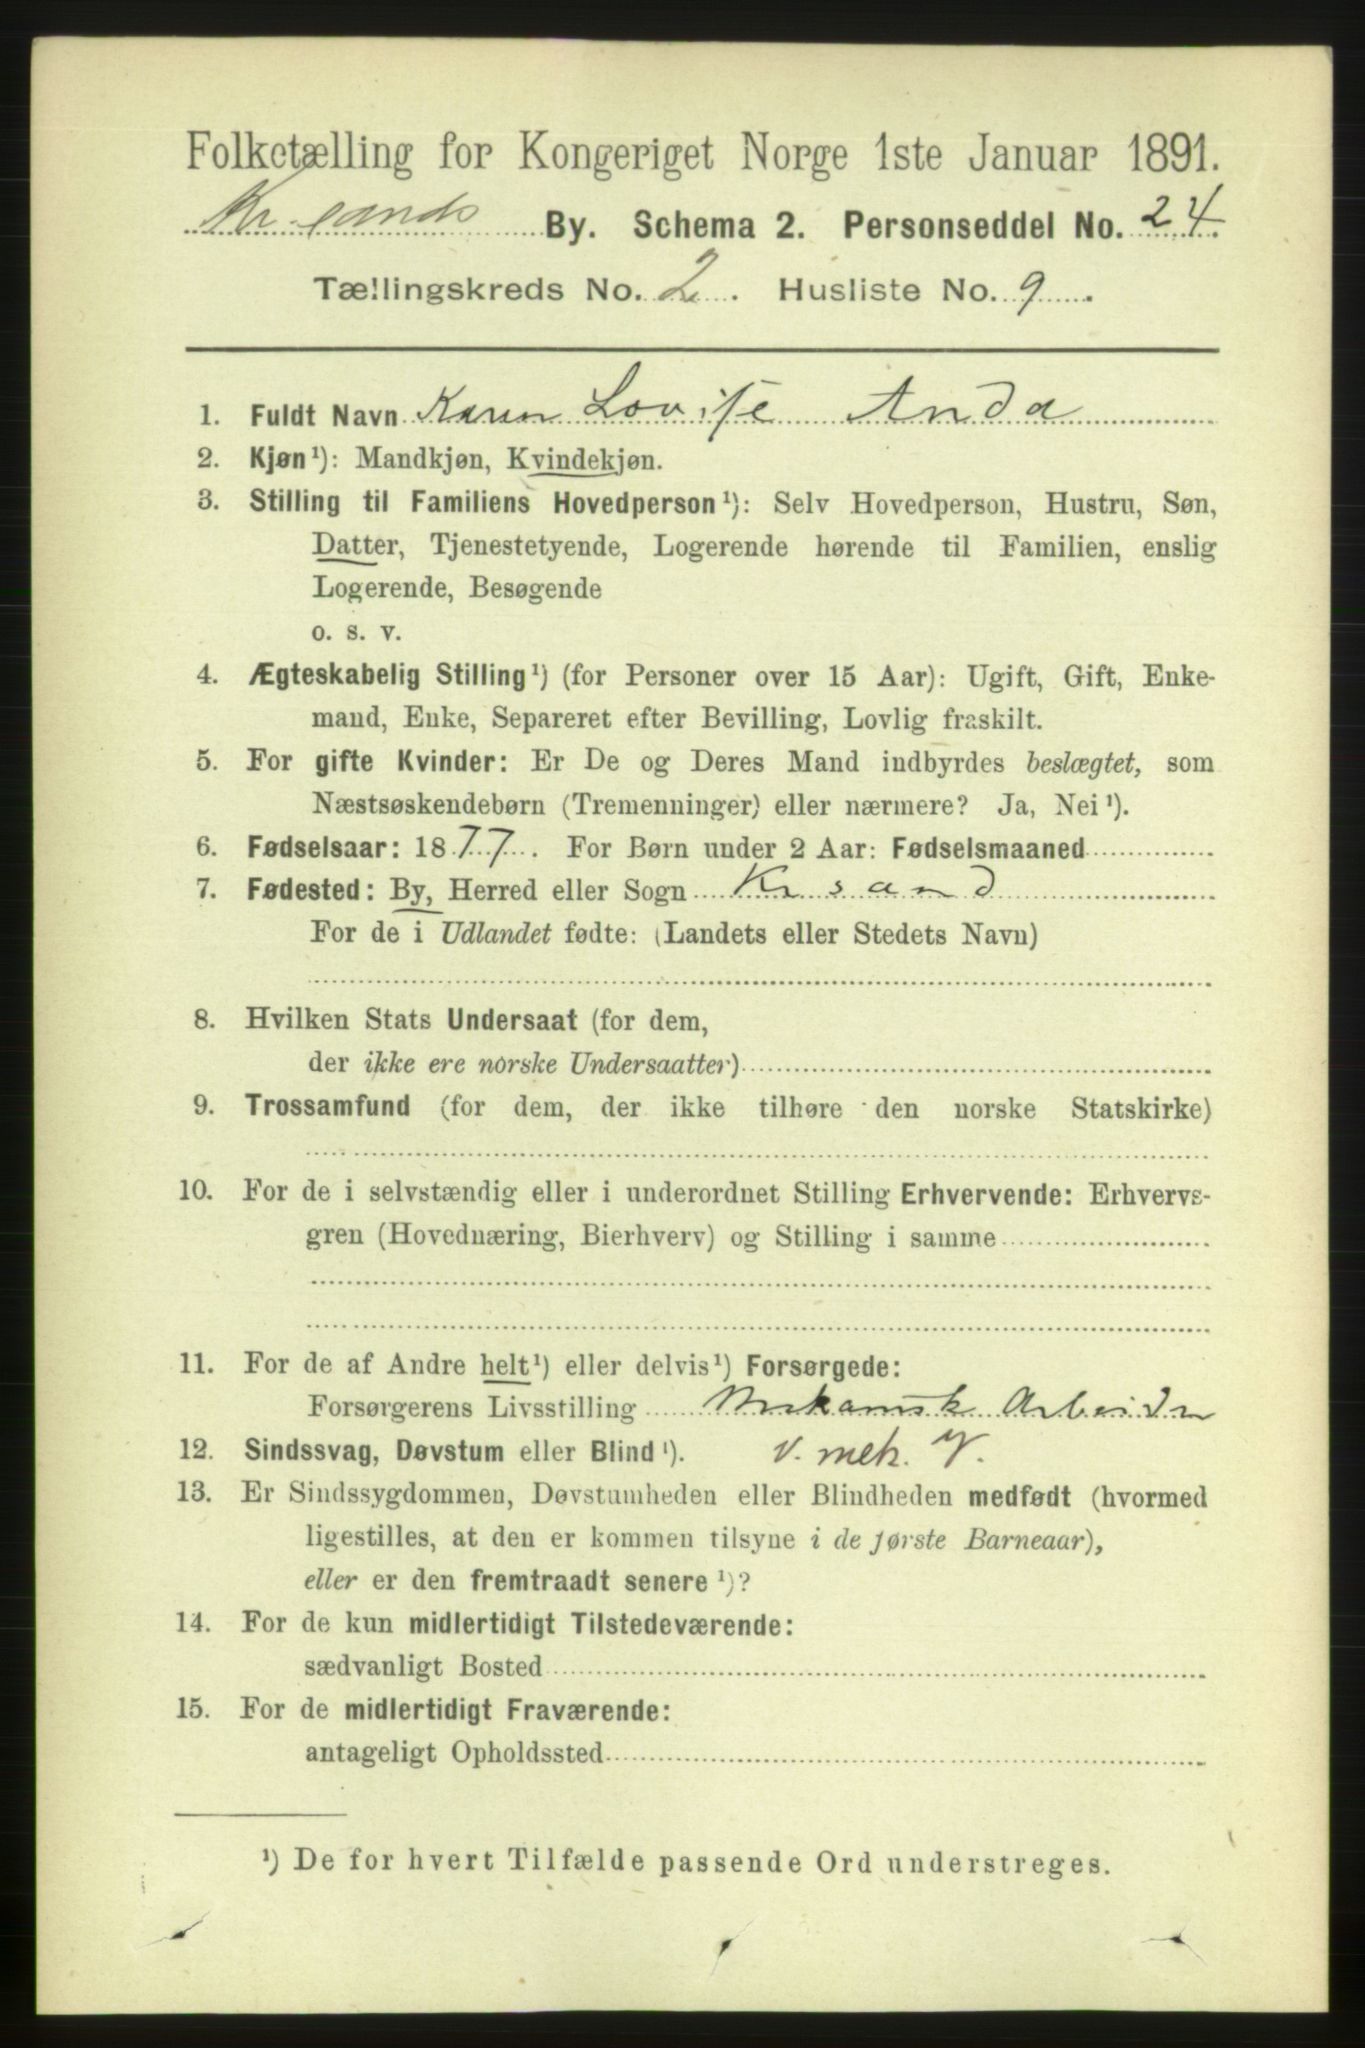 Folketælling for Kongeriget Norge 1ste Januar 1891.
Kr.sands By. Schema 2. Personseddel No. 24.
Tællingskreds No. 2. Husliste No. 9.
1. Fuldt Navn Karen Lovise Anda
2. Kjøn¹): Mandkjøn, Kvindekjøn.
3. Stilling til Familiens Hovedperson¹): Selv Hovedperson, Hustru, Søn,
Datter, Tjenestetyende, Logerende hørende til Familien, enslig
Logerende, Besøgende
o. s. v.
4. Ægteskabelig Stilling¹) (for Personer over 15 Aar): Ugift, Gift, Enke-
mand, Enke, Separeret efter Bevilling, Lovlig fraskilt.
5. For gifte Kvinder: Er De og Deres Mand indbyrdes beslægtet, som
Næstsøskendebørn (Tremenninger) eller nærmere? Ja, Nei¹).
6. Fødselsaar: 1877. For Børn under 2 Aar: Fødselsmaaned
7. Fødested: By, Herred eller Sogn Krsand
For de i Udlandet fødte: (Landets eller Stedets Navn)
8. Hvilken Stats Undersaat (for dem,
der ikke ere norske Undersaatter)
9. Trossamfund (for dem, der ikke tilhøre den norske Statskirke)
10. For de i selvstændig eller i underordnet Stilling Erhvervende: Erhvervs-
gren (Hovednæring, Bierhverv) og Stilling i samme
11. For de af Andre helt¹) eller delvis¹) Forsørgede:
Forsørgerens Livsstilling Mekanisk Arbeider
12. Sindssvag, Døvstum eller Blind¹). v. mek. V.
13. Er Sindssygdommen, Døvstumheden eller Blindheden medfødt (hvormed
ligestilles, at den er kommen tilsyne i de første Barneaar),
eller er den fremtraadt senere¹)?
14. For de kun midlertidigt Tilstedeværende:
sædvanligt Bosted
15. For de midlertidigt Fraværende:
antageligt Opholdssted
¹) De for hvert Tilfælde passende Ord understreges.